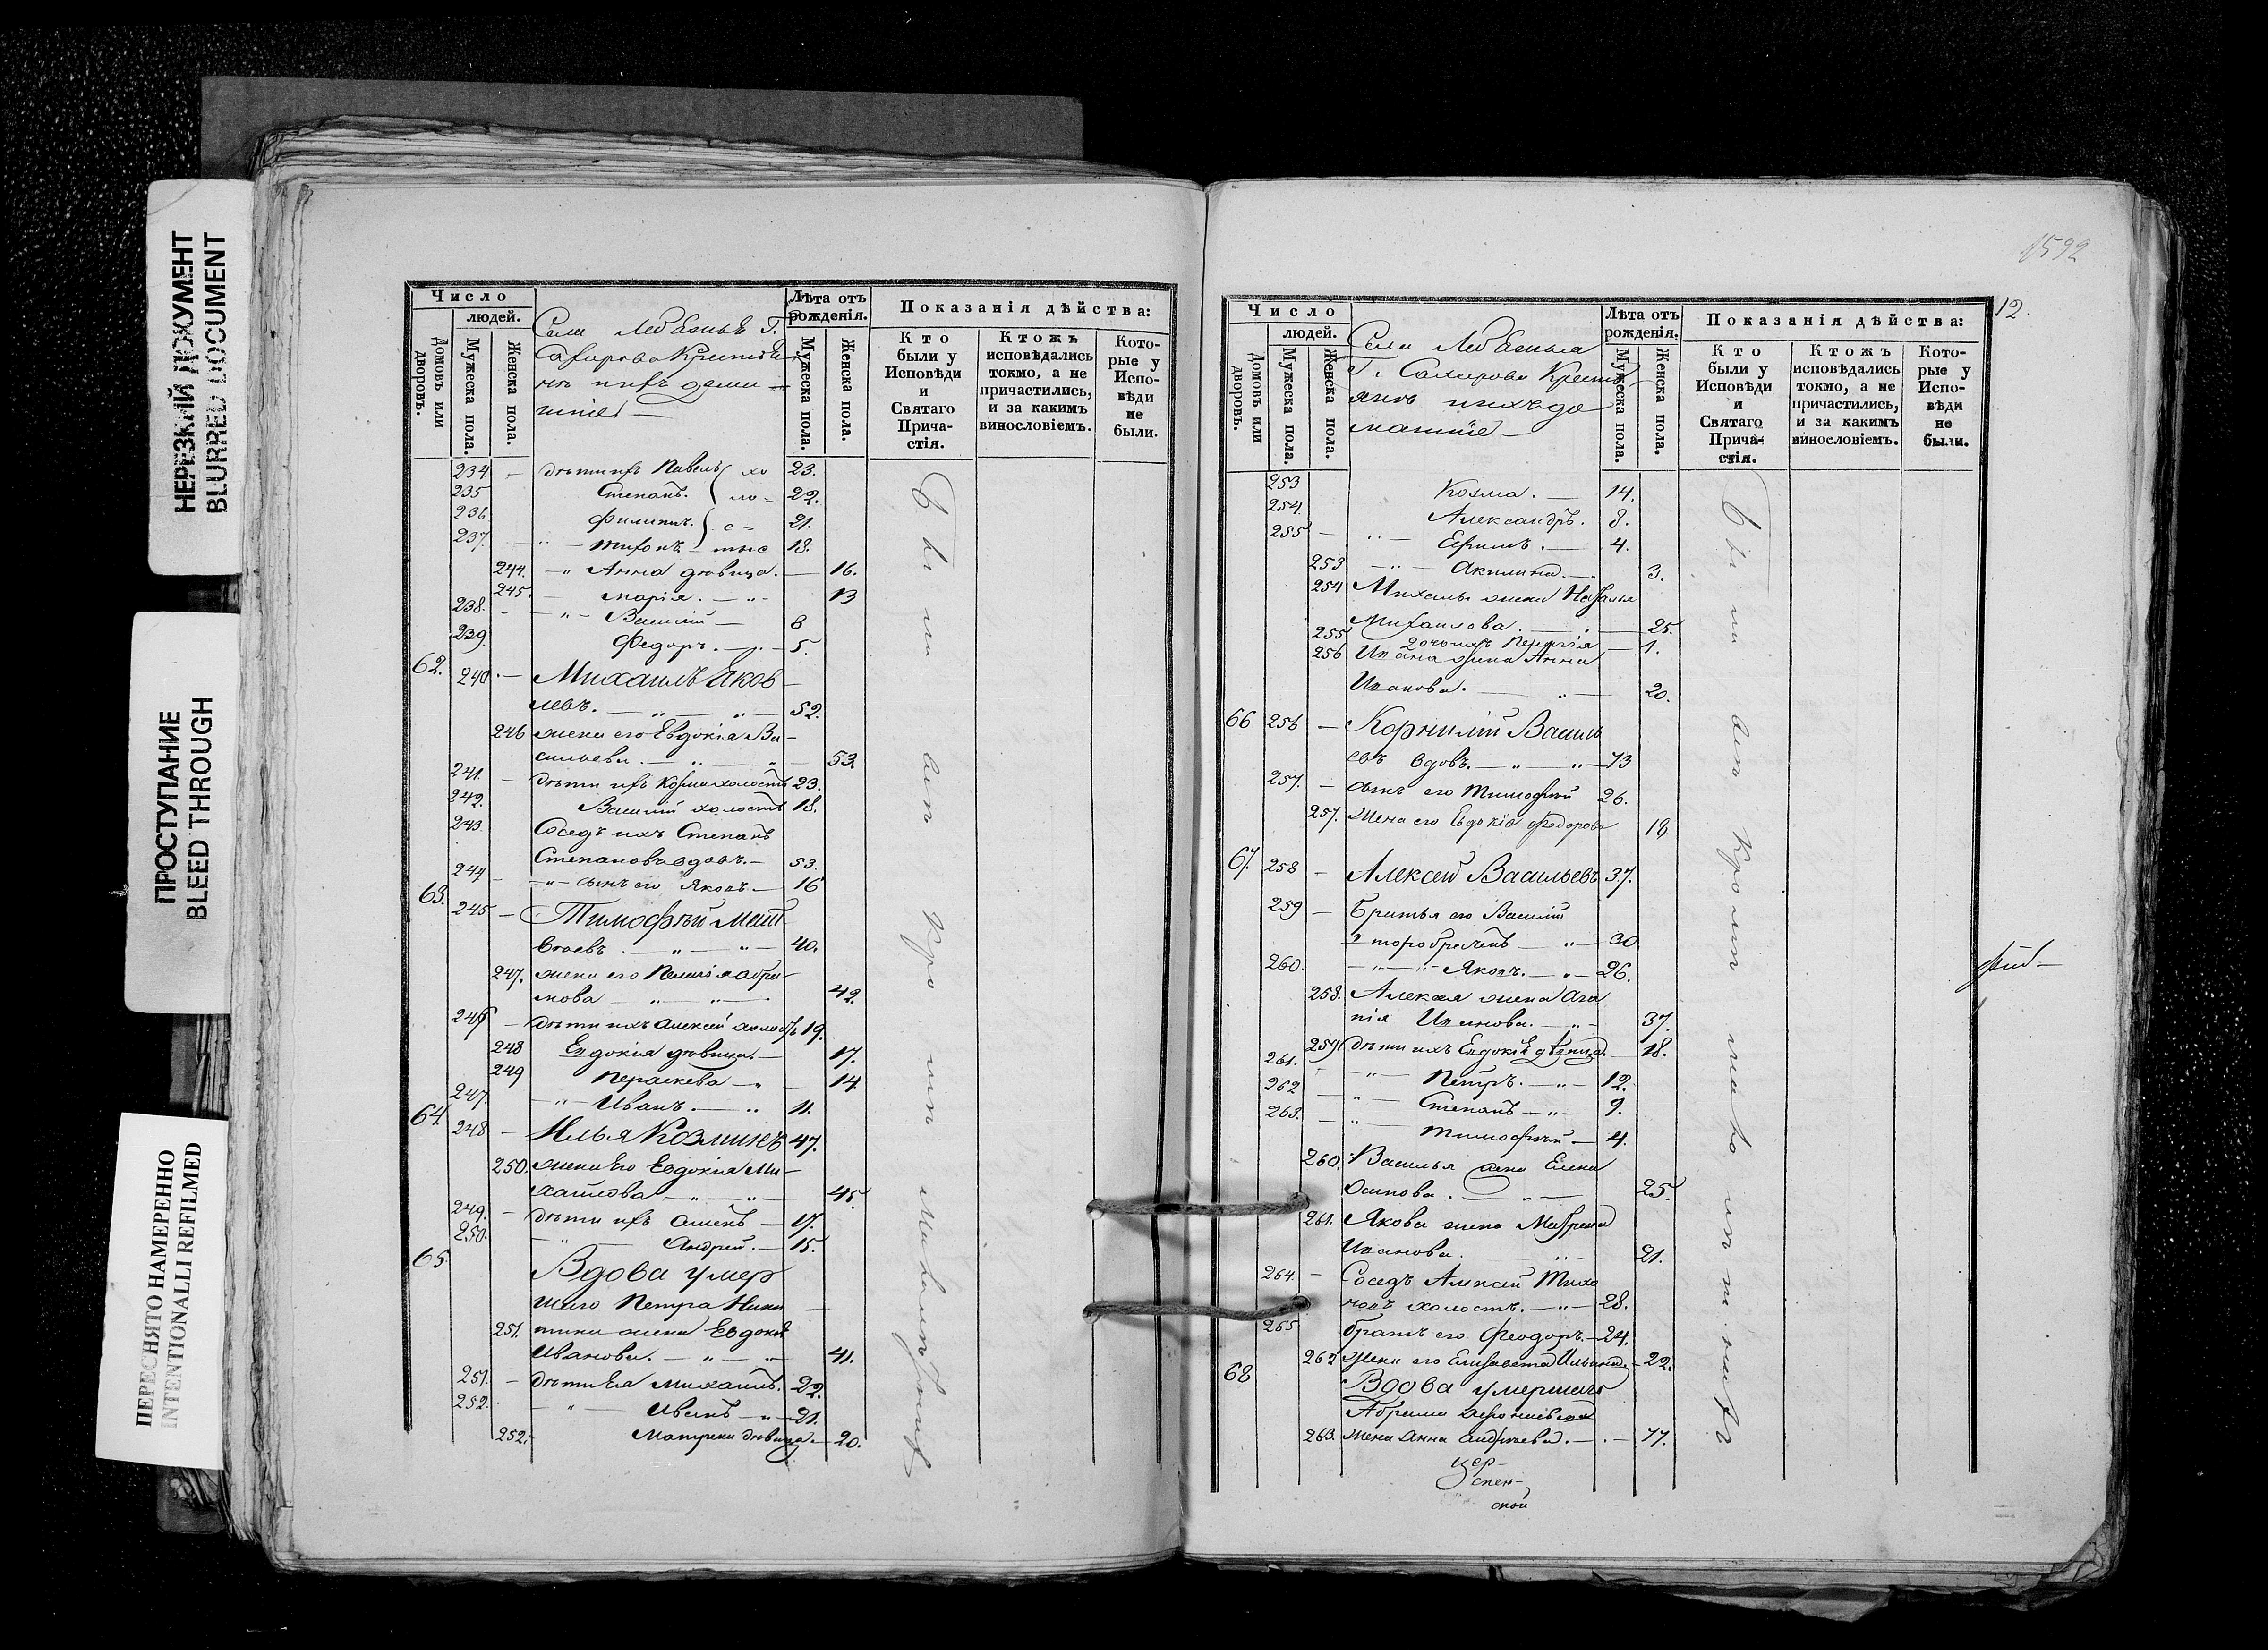 НЕРЕЗКИЙ ДОКУМЕНТ
BLURRED DOCUMENT
ПРОСТУПАНИЕ
BLEED THROUGH
ПЕРЕСНЯТО НАМЕРЕННО
INTENTIONALLI REFILMED
Число
людей.
Домовъ или дворовъ.
Мужеска пола.
Женска пола.
Села
Лѣта отъ рожденія.
Мужеска пола.
Женска пола.
Показанія дѣйства:
Кто были у Исповѣди и Святаго Прича-стія.
Ктожъ исповѣдались токмо, а не причастились, и за какимъ винословіемъ.
Кото-рые у Испо-вѣди не были.
234 — дѣти ихъ Павелъ хо 23.
235 Степанъ. ло- 22.
236 Филипъ. с- 21.
237. — Тихонъ — 18.
244. — Анна дѣвица. — 16.
245. — Марія. — 13
238. — Василій — 8
239. Ѳедоръ. — 5.
62. 240 — Михаилъ Яков-
левъ. — 52.
246 жена его Евдокія Ва-
сильева. — 53.
241. — дѣти ихъ Козма холостъ 23.
242. Василій холостъ 18.
243. Соседъ ихъ Степанъ
Степановъ вдовъ. — 53.
244 — сынъ его Яковъ — 16
63. 245 — Тимофѣй Мат
вѣевъ. — 40.
247. жена его Пелагія Абра-
мова — 42.
246 — дѣти ихъ Алексей холостъ 19.
248 Евдокія дѣвица — 17.
249 Параскева — 14
247. — Иванъ. — 11.
64 248 — Илья Козминъ 47.
250. жена его Евдокія Ми-
хайлова — 45.
249. — дѣти ихъ — 17.
250. — Андрей. — 15.
65. Вдова умер
шаго Петра Ники
251. тина жена Евдокія
Иванова. — 41.
251. — дѣти ея Михаилъ. 22.
252. — Иванъ — 21.
252. Матрена дѣвица — 20.
1592
12.
Число
людей.
Домовъ или дворовъ.
Мужеска пола.
Женска пола.
Села
Лѣта отъ рожденія.
Мужеска пола.
Женска пола.
Показанія дѣйства:
Кто были у Исповѣди и Святаго Прича-стія.
Ктожъ исповѣдались токмо, а не причастились, и за какимъ винословіемъ.
Кото-рые у Испо-вѣди не были.
253 Козма. — 14.
254. Александръ. 8.
255 — Ефимъ. — 4.
253 — Акилина. — 3.
254 Михаила жена Наталья
Михаилова. — 25.
255 дочь ихъ Пелагія — 1.
256 Ивана жена Анна
Иванова. — 20.
66 256 — Корнилій Василь
евъ вдовъ. — 73
257. — сынъ его Тимофей 26.
257. жена его Евдокія Федорова 18
67. 258 — Алексей Васильевъ 37.
259 — Братья его Василій
второбрачнъ — 30
260. — Яковъ. — 26.
258. Алексея жена Ага
пія Иванова. — 37.
259 дѣти ихъ Евдокія дѣвица. — 18.
261. — Петръ. — 12.
262 — Степанъ — 9.
263. — Тимофей — 4.
260. Василья жена Елена
Осипова. — 25.
261. Якова жена Матрена
Иванова. 21.
264. — Соседъ Алексей Тихо
новъ холостъ. — 28.
265 братъ его Феодоръ. — 24.
262 жена его Елисавета Ильина — 22.
68 Вдова умершаго
Абрама
263. жена Анна Андреева. — 77.